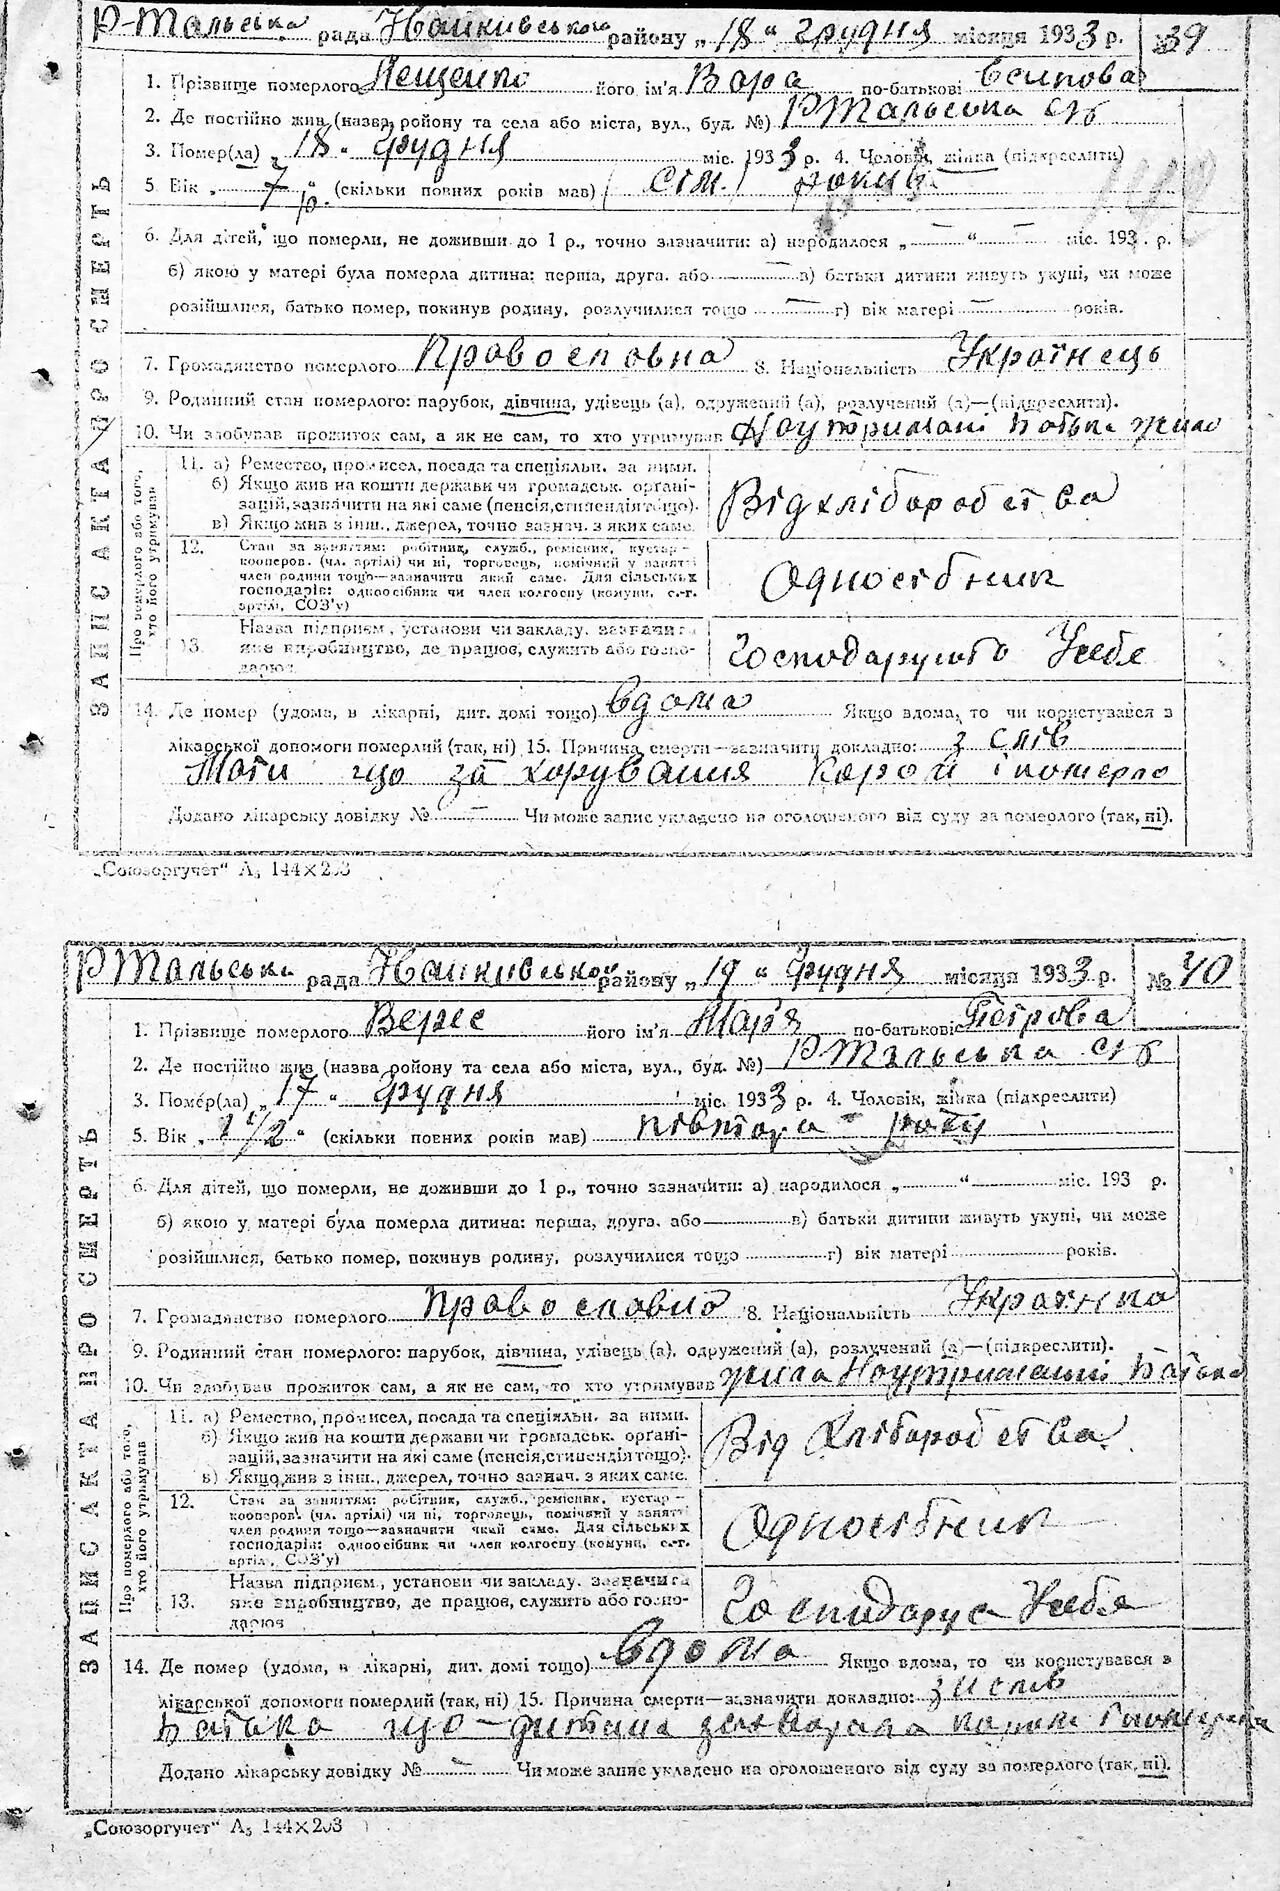 Р-Тальська рада Іванківського району „18“ грудня місяця 1933 р. № 39
1. Прізвище померлого Лещенко його ім'я Вара по-батькові Осипова
2. Де постійно жив (назва ройону та села або міста, вул., буд. №) РТальська с/р
3. Помер(ла) „18“ грудня міс. 1933 р. 4. Чоловік, жінка (підкреслити)
5. Вік „7 р.“ (скільки повних років мав) (сім) років
6. Для дітей, що померли, не доживши до 1 р., точно зазначити: а) народилося „—“ — міс. 193 . р.
б) якою у матері була померла дитина: перша, друга. або — в) батьки дитини живуть укупі, чи може
розійшлися, батько помер, покинув родину, розлучилися тощо — г) вік матері — років.
7. Громадянство померлого Православна 8. Національність Українець
9. Родинний стан померлого: парубок, дівчина, удівець (а), одружений (а), розлучений (а)—(підкреслити).
10. Чи здобував прожиток сам, а як не сам, то хто утримував На утриманні батька жила
ЗАПИС АКТА ПРО СМЕРТЬ
Про померлого або того, хто його утримував
11. а) Ремество, промисел, посада та спеціяльн. за ними.
б) Якщо жив на кошти держави чи громадськ. органі-
зацій, зазначити на які саме (пенсія, стипендія тощо).
в) Якщо жив з інш., джерел, точно зазнач. з яких саме.
Від хліборобства
12. Стан за заняттям: робітник, служб., ремісник, кустар—
кооперов. (чл. артілі) чи ні, торговець, помічний у занятті
член родини тощо—зазначити який саме. Для сільських
господарів: одноосібник чи член колгоспу (комуни, с.-г.
артілі, СОЗ'у)
Одноосібник
13. Назва підприєм., установи чи закладу. зазначити
яке виробництво, де працює, служить або госпо-
дарює
Господарують У себе
14. Де помер (удома, в лікарні, дит. домі тощо) вдома Якщо вдома, то чи користувався з
лікарської допомоги померлий (так, ні) 15. Причина смерти—зазначити докладно: з слів
Мати що захорування корой і померло
Додано лікарську довідку № — Чи може запис укладено на оголошеного від суду за померлого (так, ні).
„Союзоргучет“ А₅ 144×203
РТальська рада Іванківського району „19“ грудня місяця 1933 р. № 40
1. Прізвище померлого Верес його ім'я Мар'я по-батькові Петрова
2. Де постійно жив (назва ройону та села або міста, вул., буд. №) РТальська с/р
3. Помер(ла) „17“ грудня міс. 1933 р. 4. Чоловік, жінка (підкреслити)
5. Вік „1 1/2“ (скільки повних років мав) півтора року
6. Для дітей, що померли, не доживши до 1 р., точно зазначити: а) народилося „ “ міс. 193 р.
б) якою у матері була померла дитина: перша, друга. або в) батьки дитини живуть укупі, чи може
розійшлися, батько помер, покинув родину, розлучилися тощо г) вік матері років.
7. Громадянство померлого Православно 8. Національність Українка
9. Родинний стан померлого: парубок, дівчина, удівець (а), одружений (а), розлучений (а)—(підкреслити).
10. Чи здобував прожиток сам, а як не сам, то хто утримував жила На утриманні батька
ЗАПИС АКТА ПРО СМЕРТЬ
Про померлого або того, хто його утримував
11. а) Ремество, промисел, посада та спеціяльн. за ними.
б) Якщо жив на кошти держави чи громадськ. органі-
зацій, зазначити на які саме (пенсія, стипендія тощо).
в) Якщо жив з інш., джерел, точно зазнач. з яких саме.
Від хліборобства
12. Стан за заняттям: робітник, служб., ремісник, кустар—
кооперов. (чл. артілі) чи ні, торговець, помічний у занятті
член родини тощо—зазначити який саме. Для сільських
господарів: одноосібник чи член колгоспу (комуни, с.-г.
артілі, СОЗ'у)
Одноосібник
13. Назва підприєм., установи чи закладу. зазначити
яке виробництво, де працює, служить або госпо-
дарює
Господарує У себе
14. Де помер (удома, в лікарні, дит. домі тощо) вдома Якщо вдома, то чи користувався з
лікарської допомоги померлий (так, ні) 15. Причина смерти—зазначити докладно: зі слів
батька що дитина захворала і померла
Додано лікарську довідку № — Чи може запис укладено на оголошеного від суду за померлого (так, ні).
„Союзоргучет“ А₅ 144×203